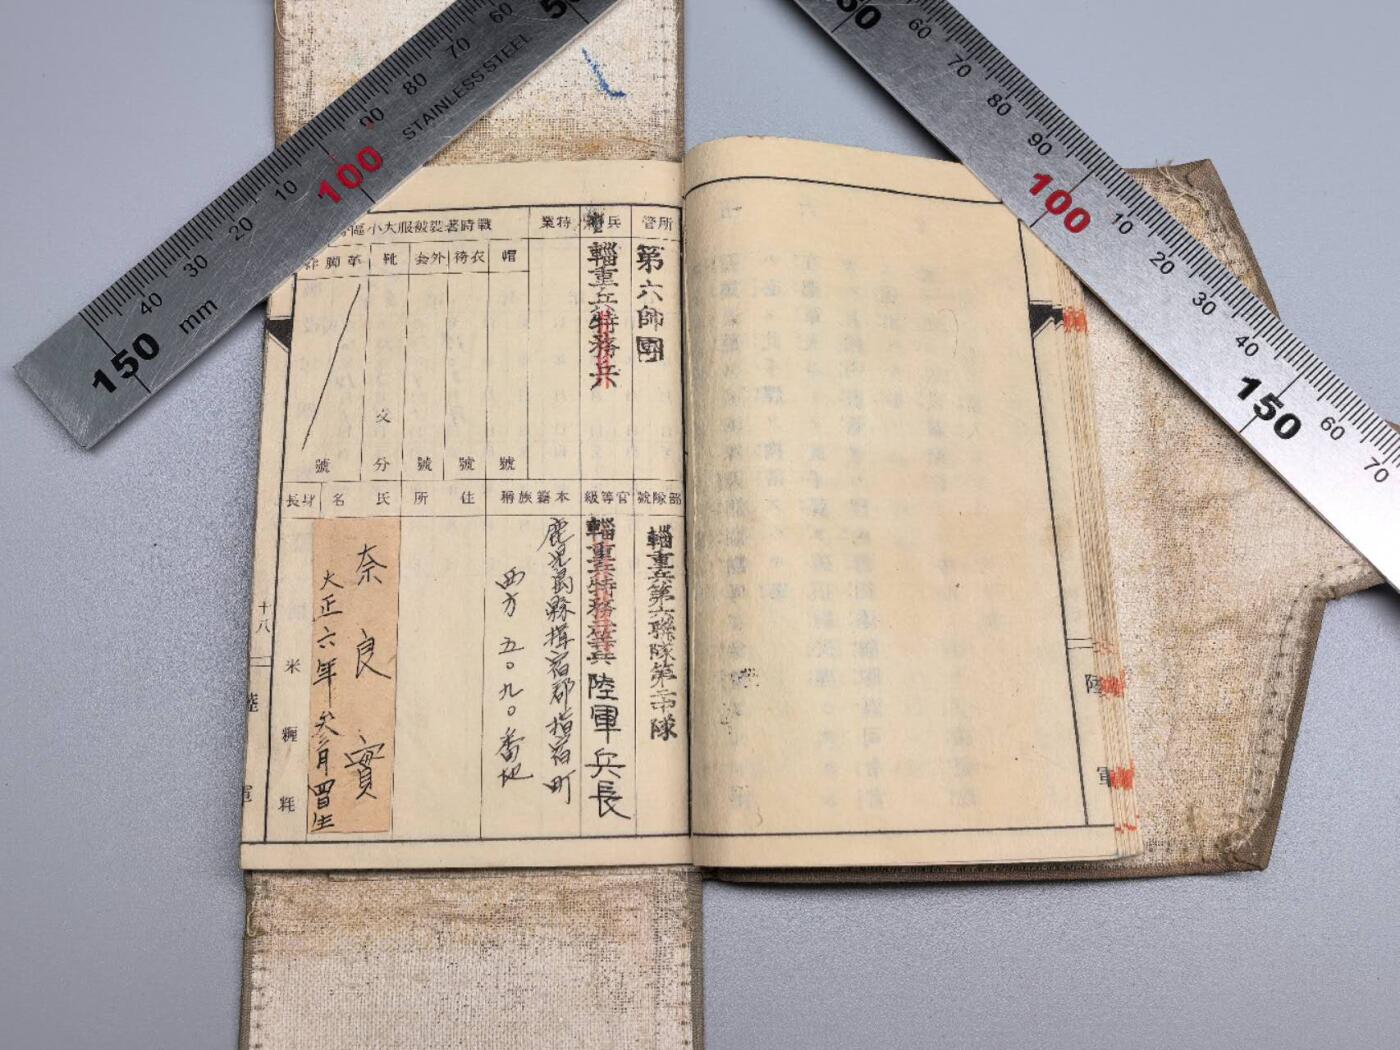 所管
第六師團
兵種
輜重兵特務兵
特業
戰時著裝被服大小區
帽
號
衣袴
號
外套
號
靴
文
分
革脚絆
號
部隊號
輜重兵第六聯隊第二中隊
官等級
輜重兵特務二等兵 陸軍兵長
本籍族稱
鹿児島縣揖宿郡指宿町
西方五〇九〇番地
住所
氏名
奈良實
大正六年参月四日生
身長
米 糎 粍
十八
陸軍
陸軍
50
60
70
80
90
100
10
20
30
40
150
mm
STAINLESS STEEL
50
60
70
80
90
100
10
20
30
40
150
60
70